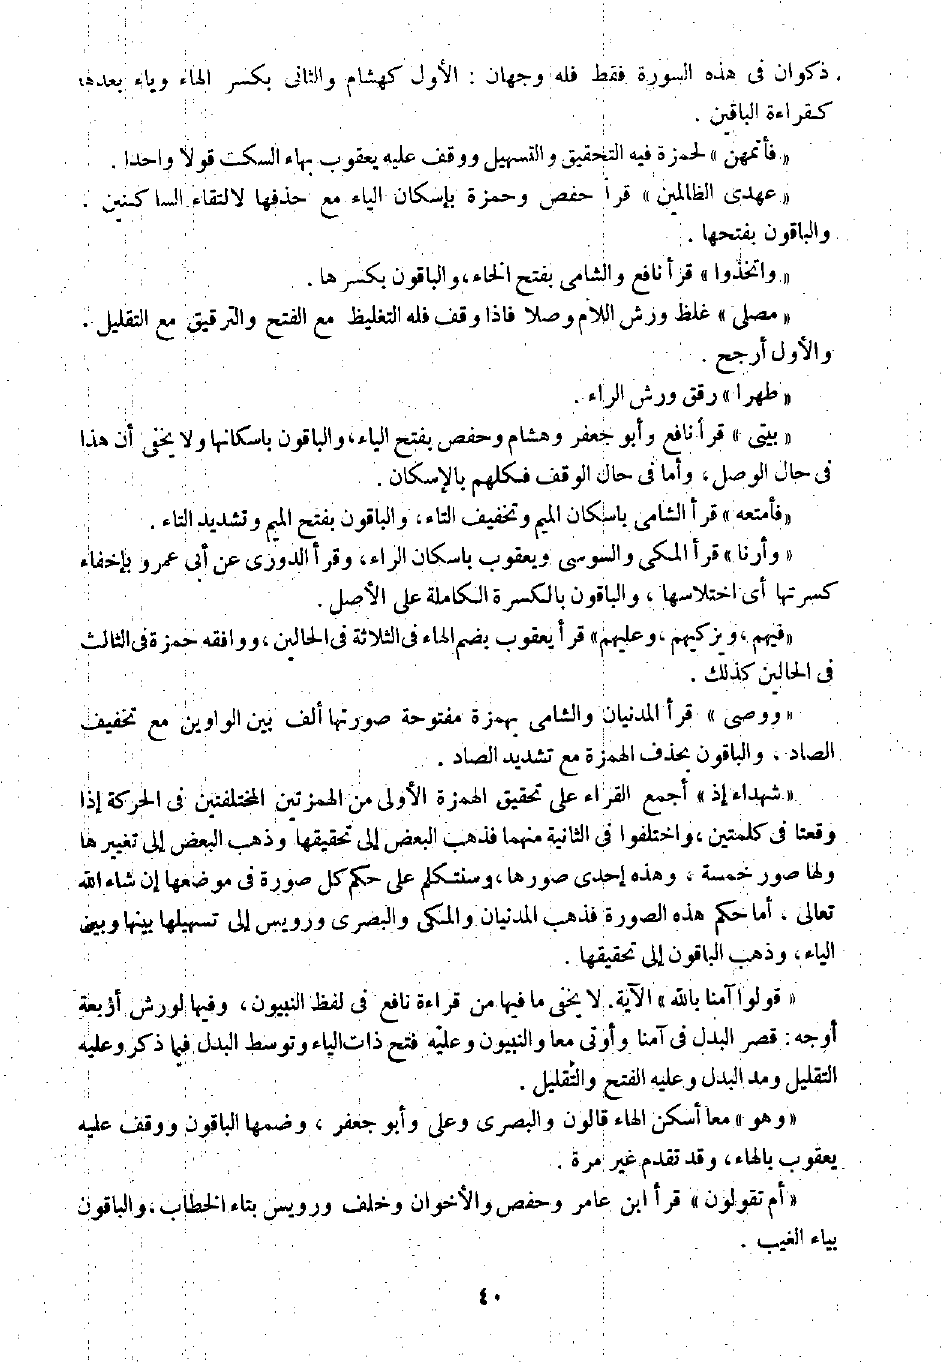 ذكوان فى هذه السورة فقط فله وجهان : الأول كهشام والثانى بكسر الهاء وياء بعدها
كقراءة الباقين .
« فأتمهن » لحمزة فيه التحقيق والتسهيل ووقف عليه يعقوب بهاء السكت قولا واحدا .
« عهدى الظالمين » قرأ حفص وحمزة بإسكان الياء مع حذفها لالتقاء الساكنين .
والباقون بفتحها .
« واتخذوا » قرأ نافع والشامى بفتح الخاء ، والباقون بكسرها .
« مصلى » غلظ ورش اللام وصلا فاذا وقف فله التغليظ مع الفتح والترقيق مع التقليل .
والأول أرجح .
« طهرا » رقق ورش الراء .
« بيتى » قرأ نافع وأبو جعفر وهشام وحفص بفتح الياء ، والباقون باسكانها ولا يخفى أن هذا
فى حال الوصل ، وأما فى حال الوقف فكلهم بالإسكان .
« فأمتعه » قرأ الشامى باسكان الميم وتخفيف التاء ، والباقون بفتح الميم وتشديد التاء .
« وأرنا » قرأ المكى والسوسى ويعقوب باسكان الراء ، وقرأ الدورى عن أبى عمرو بإخفاء
كسرتها أى اختلاسها ، والباقون بالكسرة الكاملة على الأصل .
« فيهم ، ويزكيهم ، وعليهم » قرأ يعقوب بضم الهاء فى الثلاثة فى الحالين ، ووافقه حمزة فى الثالث
فى الحالين كذلك .
« ووصى » قرأ المدنيان والشامى بهمزة مفتوحة صورتها ألف بين الواوين مع تخفيف
الصاد ، والباقون بحذف الهمزة مع تشديد الصاد .
« شهداء إذ » أجمع القراء على تحقيق الهمزة الأولى من الهمزتين المختلفتين فى الحركة إذا
وقعتا فى كلمتين ، واختلفوا فى الثانية منهما فذهب البعض إلى تحقيقها وذهب البعض إلى تغييرها
ولها صور خمسة ، وهذه إحدى صورها ، وسنتكلم على حكم كل صورة فى موضعها إن شاء الله
تعالى ، أما حكم هذه الصورة فذهب المدنيان والمكى والبصرى ورويس إلى تسهيلها بينها وبين
الياء ، وذهب الباقون إلى تحقيقها .
« قولوا آمنا بالله » الآية . لا يخفى ما فيها من قراءة نافع فى لفظ النبيون ، وفيها لورش أربعة
أوجه : قصر البدل فى آمنا وأوتى معا والنبيون وعليه فتح ذات الياء وتوسط البدل فيما ذكر وعليه
التقليل ومد البدل وعليه الفتح والتقليل .
« وهو » معا أسكن الهاء قالون والبصرى وعلى وأبو جعفر ، وضمها الباقون ووقف عليه
يعقوب بالهاء ، وقد تقدم غير مرة .
« أم تقولون » قرأ ابن عامر وحفص والأخوان وخلف ورويس بتاء الخطاب ، والباقون
بياء الغيب .
٤٠